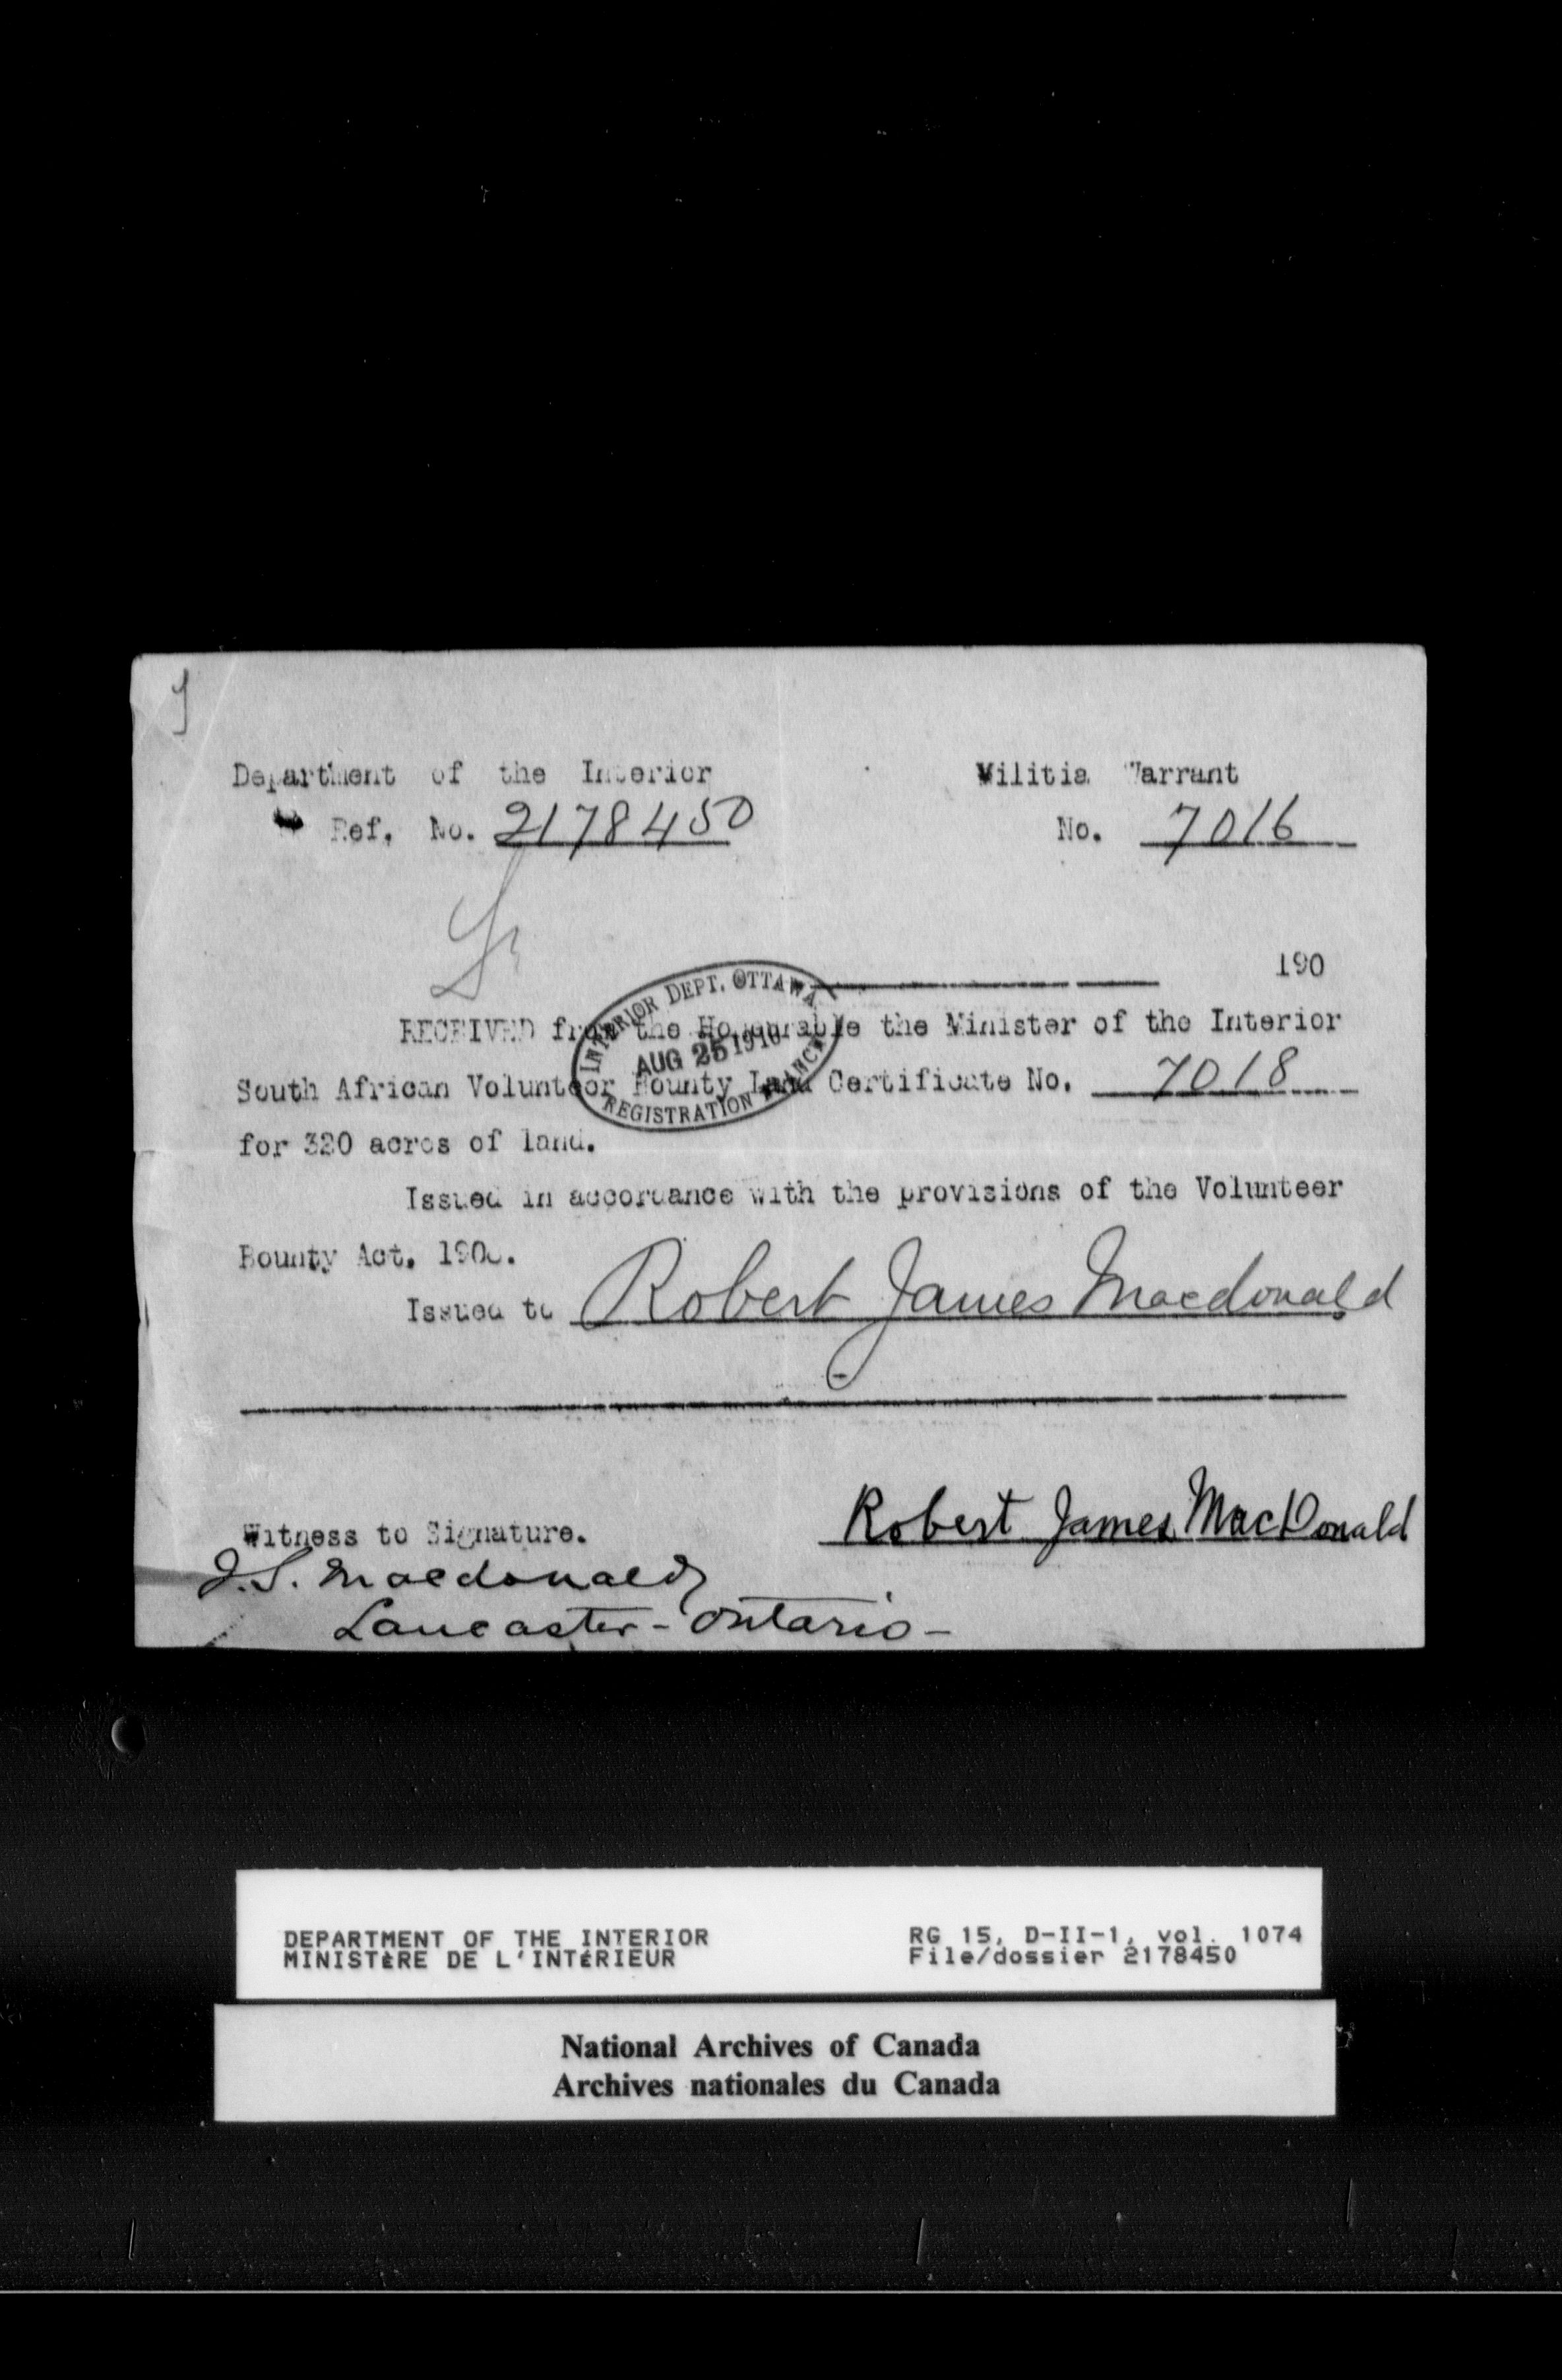 Department of the Interior
Ref. No. 2178450
Militia Warrant
No. 7016
190
INTERIOR DEPT. OTTAWA
AUG 25 1910
REGISTRATION BRANCH
RECEIVED from the Honourable the Minister of the Interior
South African Volunteer Bounty Land Certificate No. 7018
for 320 acres of land.
Issued in accordance with the provisions of the Volunteer
Bounty Act, 190
Issued to Robert James Macdonald
Robert James MacDonald
Witness to Signature.
J.S. Macdonald
Lancaster - Ontario -
DEPARTMENT OF THE INTERIOR
MINISTÈRE DE L'INTÉRIEUR
RG 15, D-II-1, vol. 1074
File/dossier 2178450
National Archives of Canada
Archives nationales du Canada